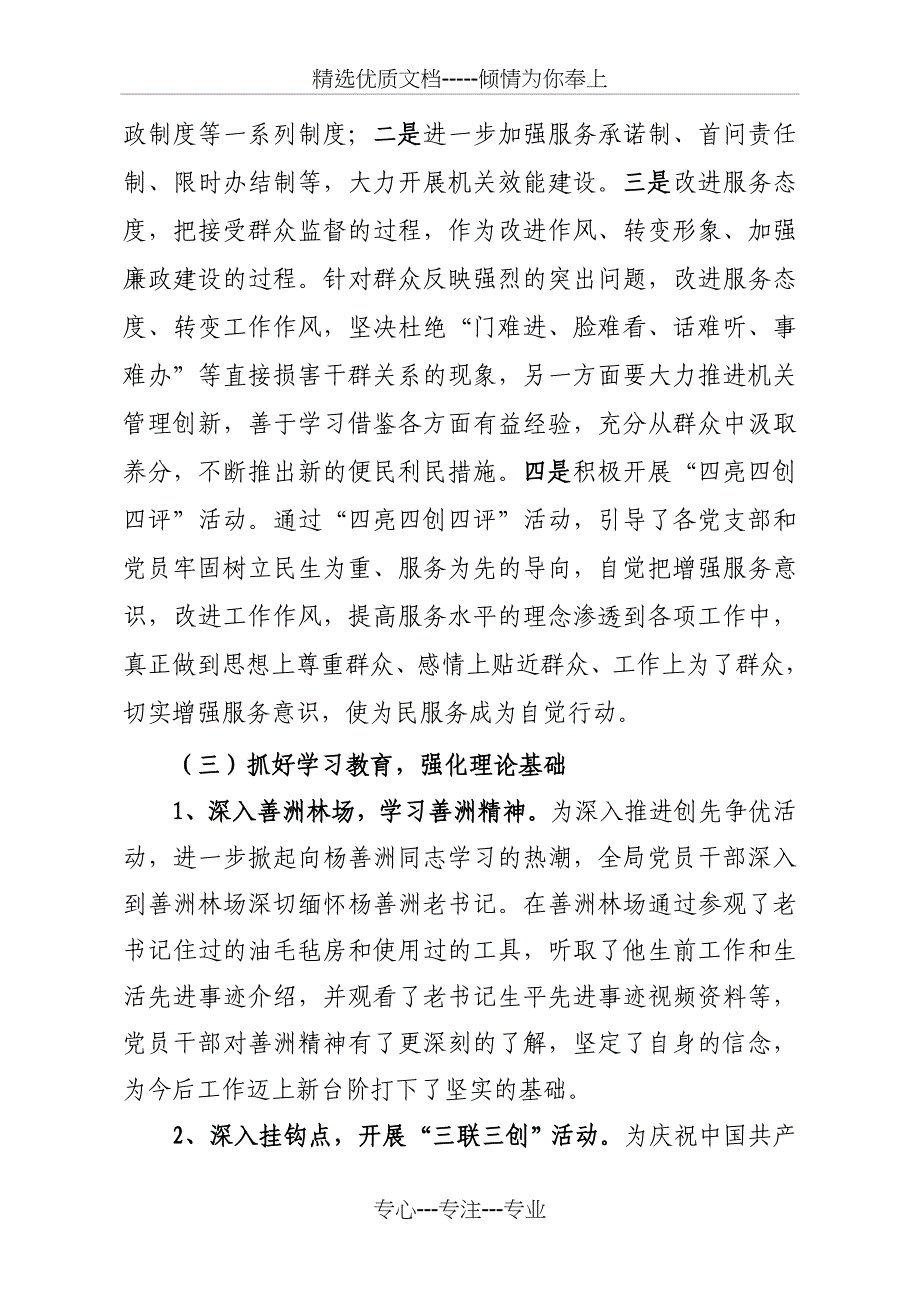 精选优质文档-----倾情为你奉上
政制度等一系列制度；二是进一步加强服务承诺制、首问责任
制、限时办结制等，大力开展机关效能建设。三是改进服务态
度，把接受群众监督的过程，作为改进作风、转变形象、加强
廉政建设的过程。针对群众反映强烈的突出问题，改进服务态
度、转变工作作风，坚决杜绝“门难进、脸难看、话难听、事
难办”等直接损害干群关系的现象，另一方面要大力推进机关
管理创新，善于学习借鉴各方面有益经验，充分从群众中汲取
养分，不断推出新的便民利民措施。四是积极开展“四亮四创
四评”活动。通过“四亮四创四评”活动，引导了各党支部和
党员牢固树立民生为重、服务为先的导向，自觉把增强服务意
识，改进工作作风，提高服务水平的理念渗透到各项工作中，
真正做到思想上尊重群众、感情上贴近群众、工作上为了群众，
切实增强服务意识，使为民服务成为自觉行动。
（三）抓好学习教育，强化理论基础
1、深入善洲林场，学习善洲精神。为深入推进创先争优活
动，进一步掀起向杨善洲同志学习的热潮，全局党员干部深入
到善洲林场深切缅怀杨善洲老书记。在善洲林场通过参观了老
书记住过的油毛毡房和使用过的工具，听取了他生前工作和生
活先进事迹介绍，并观看了老书记生平先进事迹视频资料等，
党员干部对善洲精神有了更深刻的了解，坚定了自身的信念，
为今后工作迈上新台阶打下了坚实的基础。
2、深入挂钩点，开展“三联三创”活动。为庆祝中国共产
专心---专注---专业